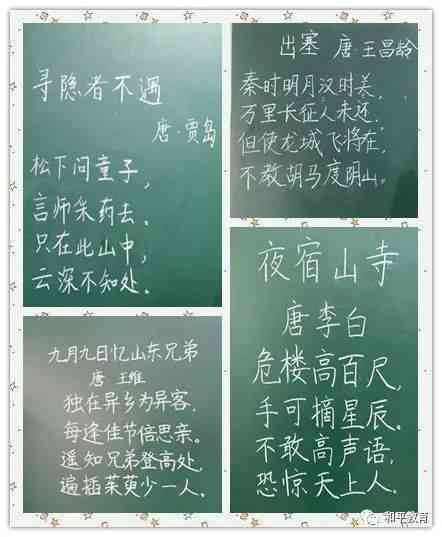 寻隐者不遇
唐·贾岛
松下问童子，
言师采药去。
只在此山中，
云深不知处。
出塞 唐·王昌龄
秦时明月汉时关，
万里长征人未还，
但使龙城飞将在，
不教胡马度阴山。
九月九日忆山东兄弟
唐 王维
独在异乡为异客，
每逢佳节倍思亲。
遥知兄弟登高处，
遍插茱萸少一人。
夜宿山寺
唐 李白
危楼高百尺，
手可摘星辰。
不敢高声语，
恐惊天上人。
和平教育